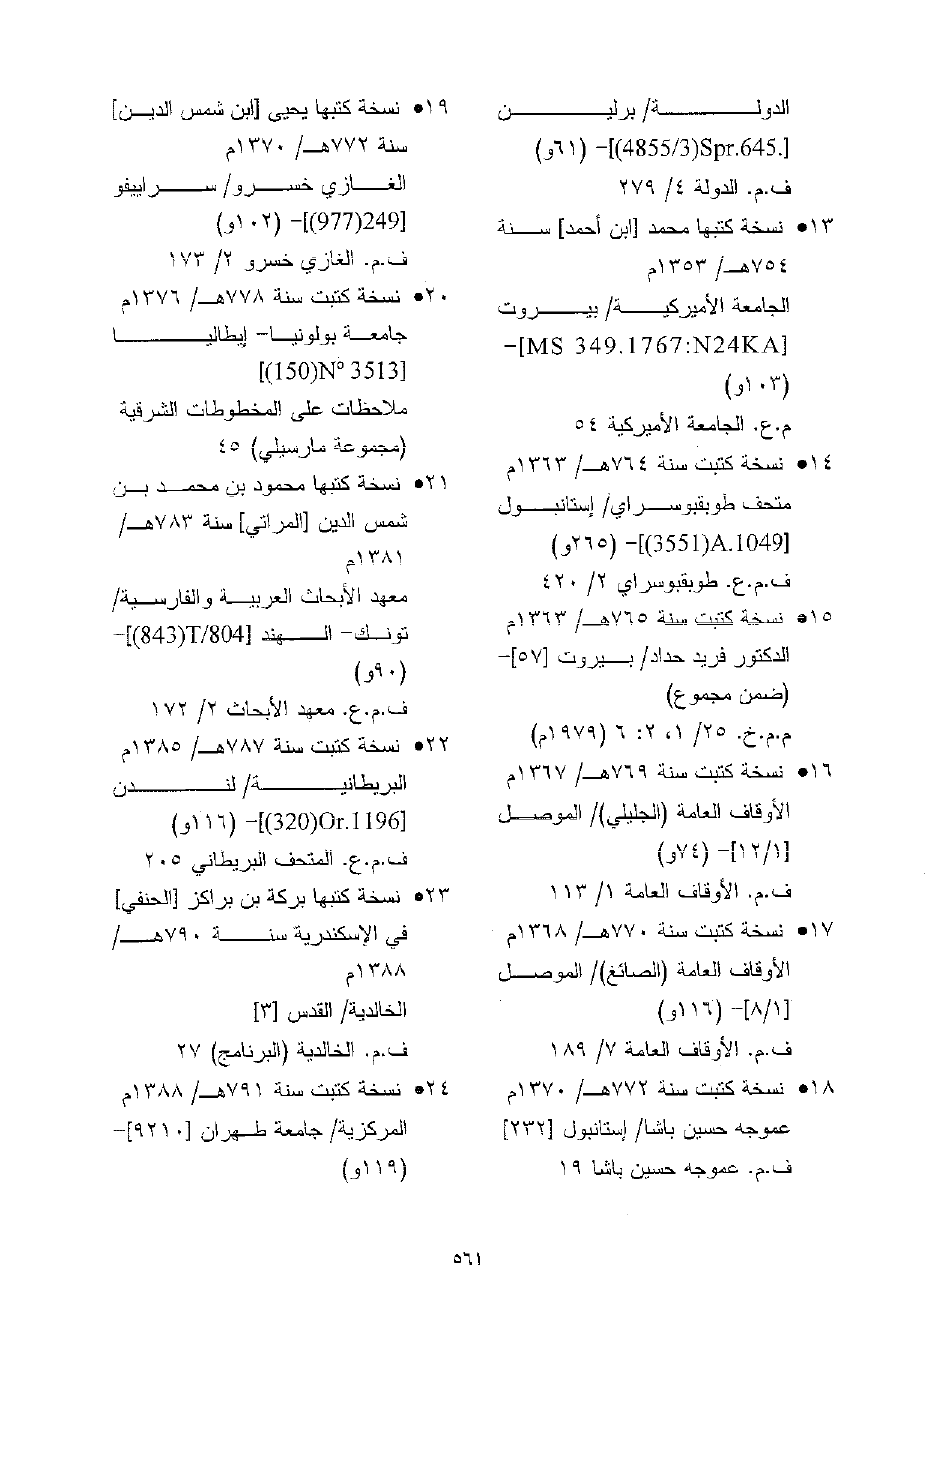 الدولة/ برلين
[.Spr.645(4855/3)]- (٦١و)
ف.م. الدولة ٤/ ٢٧٩
١٣• نسخة كتبها محمد [ابن أحمد] سنة
٧٥٤هـ/ ١٣٥٣م
الجامعة الأميركية/ بيروت
[MS 349.1767:N24KA]-
(١٠٣و)
م.ع. الجامعة الأميركية ٥٤
١٤• نسخة كتبت سنة ٧٦٤هـ/ ١٣٦٣م
متحف طوبقبوسراي/ إستانبول
[A.1049(3551)]- (٢٦٥و)
ف.م.ع. طوبقبوسراي ٢/ ٤٢٠
١٥• نسخة كتبت سنة ٧٦٥هـ/ ١٣٦٣م
الدكتور فريد حداد/ بيروت [٥٧]-
(ضمن مجموع)
م.م.خ. ٢٥/ ١، ٢: ٦ (١٩٧٩م)
١٦• نسخة كتبت سنة ٧٦٩هـ/ ١٣٦٧م
الأوقاف العامة (الجليلي)/ الموصل
[١٢/١]- (٧٤و)
ف.م. الأوقاف العامة ١/ ١١٣
١٧• نسخة كتبت سنة ٧٧٠هـ/ ١٣٦٨م
الأوقاف العامة (الصائغ)/ الموصل
[٨/١]- (١١٦و)
ف.م. الأوقاف العامة ٧/ ١٨٩
١٨• نسخة كتبت سنة ٧٧٢هـ/ ١٣٧٠م
عموجه حسين باشا/ إستانبول [٢٣٢]
ف.م. عموجه حسين باشا ١٩
١٩• نسخة كتبها يحيى [ابن شمس الدين]
سنة ٧٧٢هـ/ ١٣٧٠م
الغازي خسرو/ سراييفو
[249(977)]- (١٠٢و)
ف.م. الغازي خسرو ٢/ ١٧٣
٢٠• نسخة كتبت سنة ٧٧٨هـ/ ١٣٧٦م
جامعة بولونيا- إيطاليا
[N° 3513(150)]
ملاحظات على المخطوطات الشرقية
(مجموعة مارسيلي) ٤٥
٢١• نسخة كتبها محمود بن محمد بن
شمس الدين [المراتي] سنة ٧٨٣هـ/
١٣٨١م
معهد الأبحاث العربية والفارسية/
تونك- الهند [T/804(843)]-
(٩٠و)
ف.م.ع. معهد الأبحاث ٢/ ١٧٢
٢٢• نسخة كتبت سنة ٧٨٧هـ/ ١٣٨٥م
البريطانية/ لندن
[Or.1196(320)]- (١١٦و)
ف.م.ع. المتحف البريطاني ٢٠٥
٢٣• نسخة كتبها بركة بن براكز [الحنفي]
في الإسكندرية سنة ٧٩٠هـ/
١٣٨٨م
الخالدية/ القدس [٣]
ف.م. الخالدية (البرنامج) ٢٧
٢٤• نسخة كتبت سنة ٧٩١هـ/ ١٣٨٨م
المركزية/ جامعة طهران [٩٢١٠]-
(١١٩و)
٥٦١